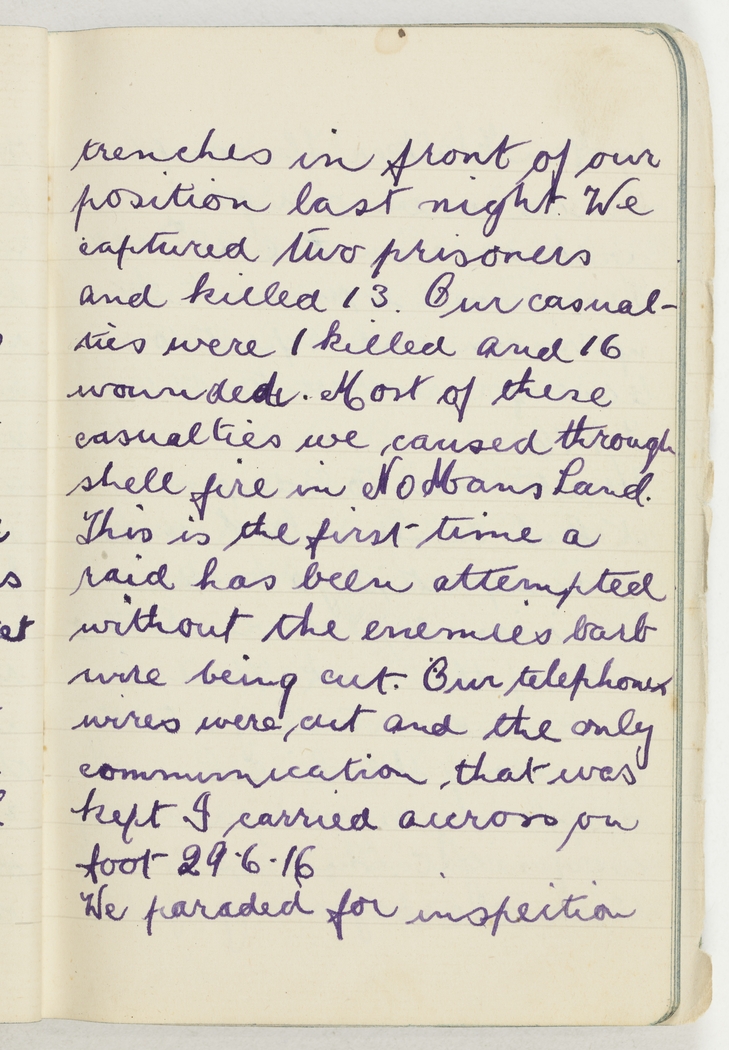 trenches in front of our
position last night. We
captured two prisoners
and killed 13. Our casual-
ties were 1 killed and 16
wounded. Most of these
casualties we caused through
shell fire in No Mans Land.
This is the first time a
raid has been attempted
without the enemies barb
wire being cut. Our telephone
wires were cut and the only
communication that was
kept I carried accross on
foot 29.6.16
We paraded for inspection